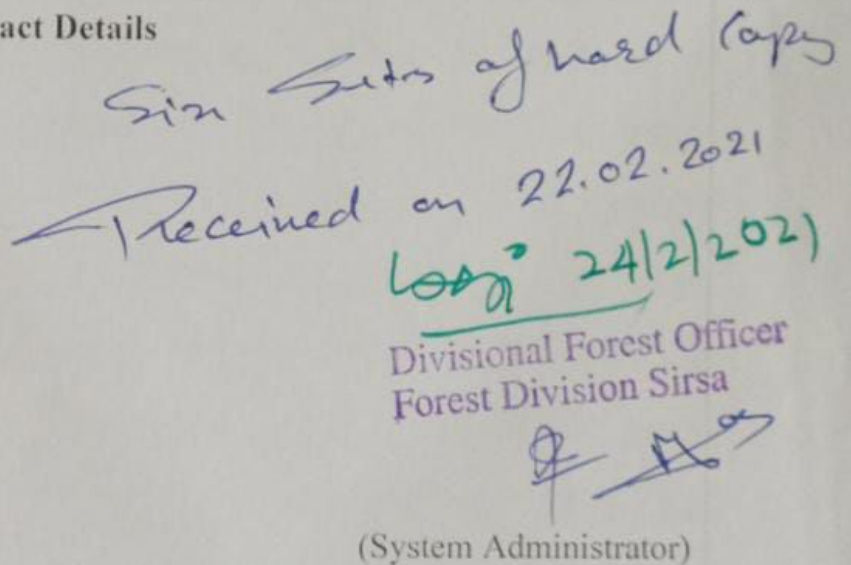 act Details
Six Sets of hard Copy
Received on 22.02.2021
24/2/2021
Divisional Forest Officer
Forest Division Sirsa
(System Administrator)